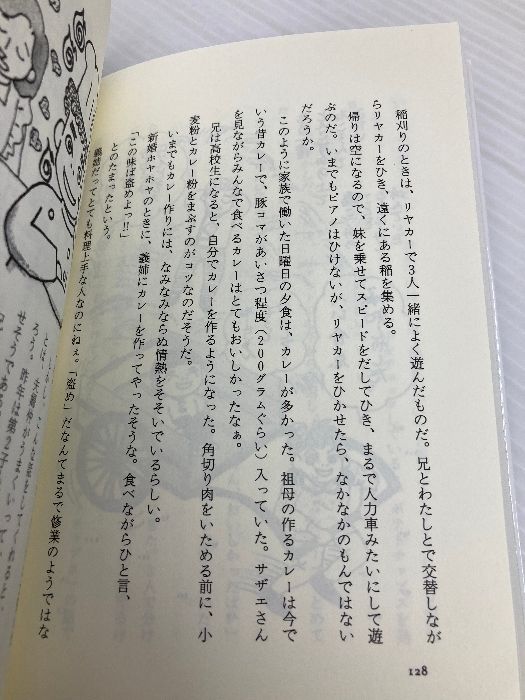 稲刈りのときは、リヤカーで3人一緒によく遊んだものだ。兄とわたしとで交替しなが
らリヤカーをひき、遠くにある稲を集める。
帰りは空になるので、妹を乗せてスピードをだしてひき、まるで人力車みたいにして遊
ぶのだ。いまでもピアノはひけないが、リヤカーをひかせたら、なかなかのもんではない
だろうか。
このように家族で働いた日曜日の夕食は、カレーが多かった。祖母の作るカレーは今で
いう昔カレーで、豚コマがあいさつ程度（200グラムぐらい）入っていた。サザエさん
を見ながらみんなで食べるカレーはとてもおいしかったなぁ。
兄は高校生になると、自分でカレーを作るようになった。角切り肉をいためる前に、小
麦粉とカレー粉をまぶすのがコツなのだそうだ。
いまでもカレー作りには、なみなみならぬ情熱をそそいでいるらしい。
新婚ホヤホヤのときに、義姉にカレーを作ってやったそうな。食べながらひと言、
「この味ば盗めよっ!!」
とのたまったという。
義姉だってとても料理上手な人なのにねぇ。「盗め」だなんてまるで修業のようではな
ろう。夫婦仲がうまくいってい
128